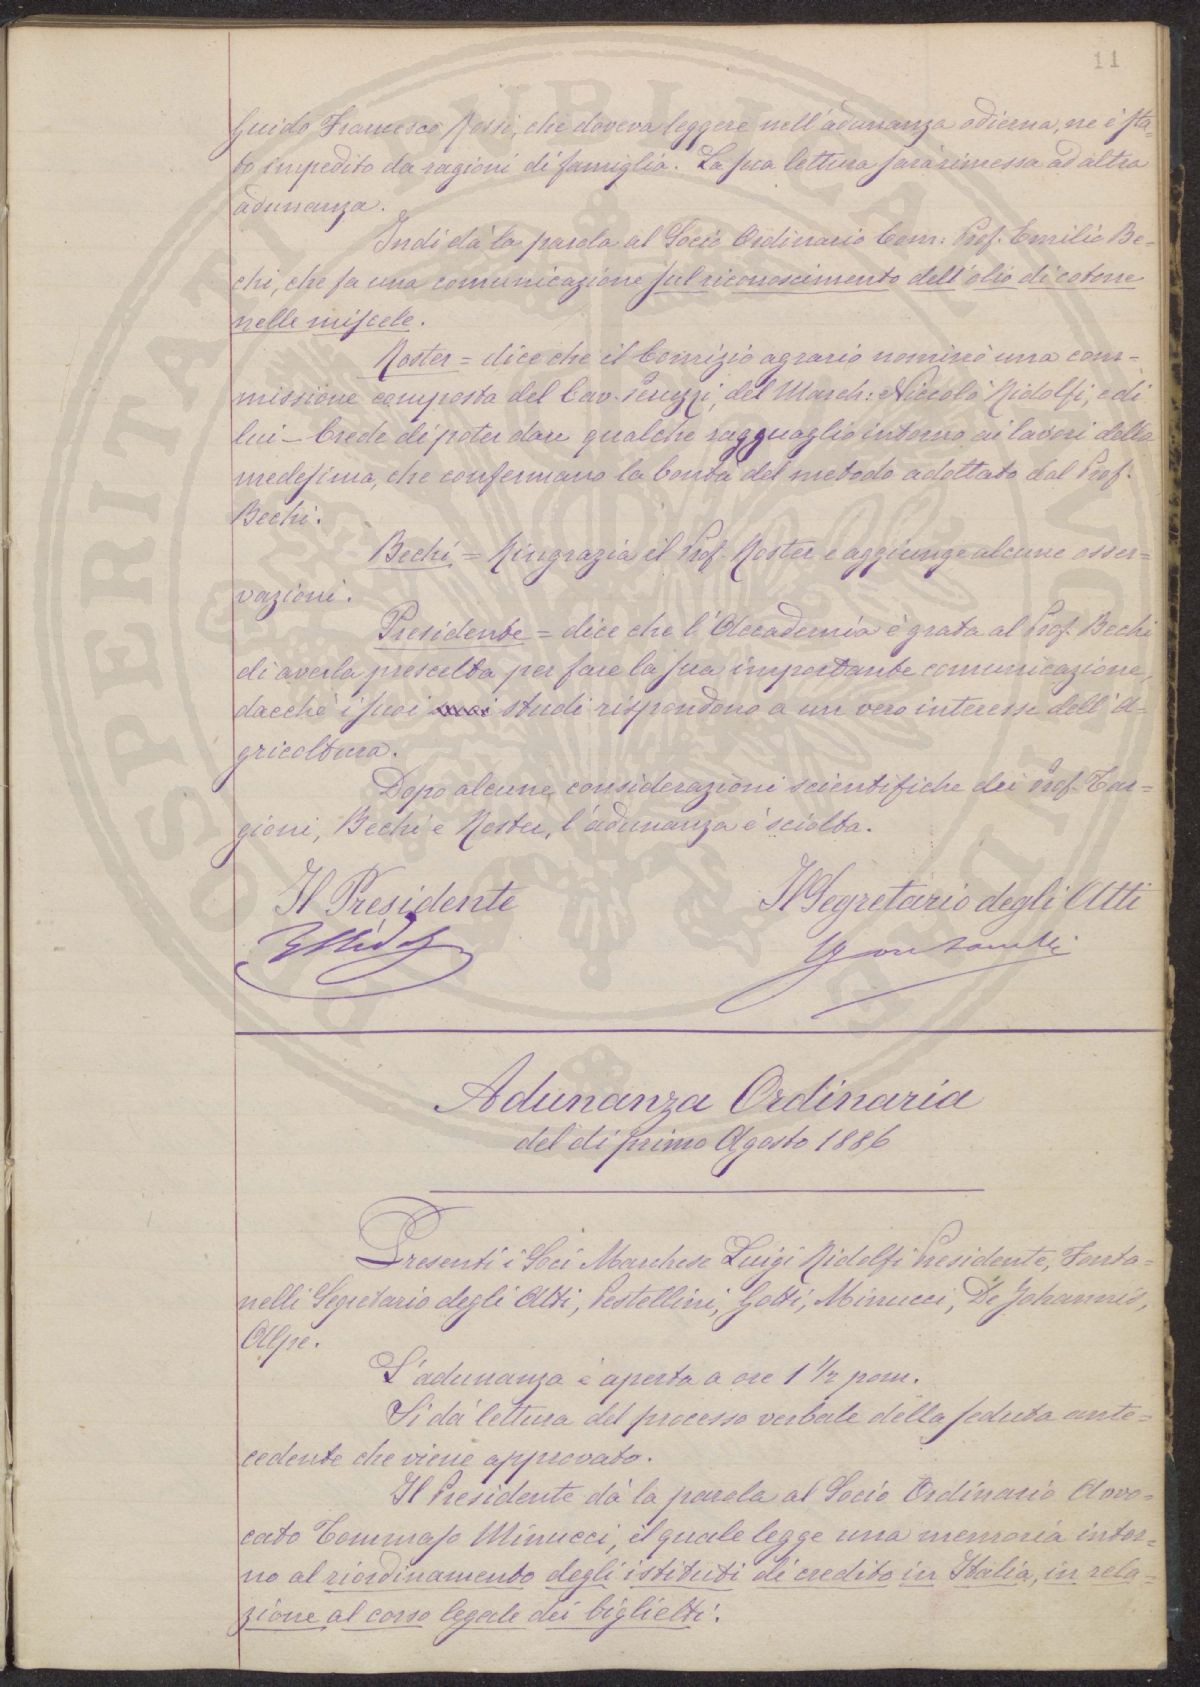 11
Guido Francesco Rossi, che doveva leggere nell'adunanza odierna, ne è sta-
to impedito da ragioni di famiglia. La sua lettura sarà rimessa ad altra
adunanza.
Indi dà la parola al Socio Ordinario Com: Prof. Emilio Be-
chi, che fa una comunicazione sul riconoscimento dell'olio di cotone
nelle miscele.
Roster = dice che il Comizio agrario nominò una com-
missione composta del Cav. Peruzzi, del March: Niccolò Ridolfi, e di
lui – Crede di poter dare qualche ragguaglio intorno ai lavori della
medesima, che confermano la bontà del metodo adottato dal Prof.
Bechi.
Bechi = Ringrazia il Prof. Roster e aggiunge alcune osser-
vazioni.
Presidente = dice che l'Accademia è grata al Prof. Bechi
di averla prescelta per fare la sua importante comunicazione,
dacchè i suoi studi rispondono a un vero interesse dell'A-
gricoltura.
Dopo alcune considerazioni scientifiche dei Prof. Tar-
gioni, Bechi e Roster, l'adunanza è sciolta.
Il Presidente
Il Segretario degli Atti
L Ridolfi
Adunanza Ordinaria
del dì primo Agosto 1886
Presenti i Soci Marchese Luigi Ridolfi Presidente, Fonta-
nelli Segretario degli Atti, Pestellini, Gotti, Minucci, De Johannis,
Alpe.
L'adunanza è aperta a ore 1 1/2 pom.
Si dà lettura del processo verbale della seduta ante-
cedente che viene approvato.
Il Presidente dà la parola al Socio Ordinario Avvo-
cato Tommaso Minucci, il quale legge una memoria intor-
no al riordinamento degli istituti di credito in Italia, in rela-
zione al corso legale dei biglietti.
PROSPERITATI PUBLICAE AUGENDAE